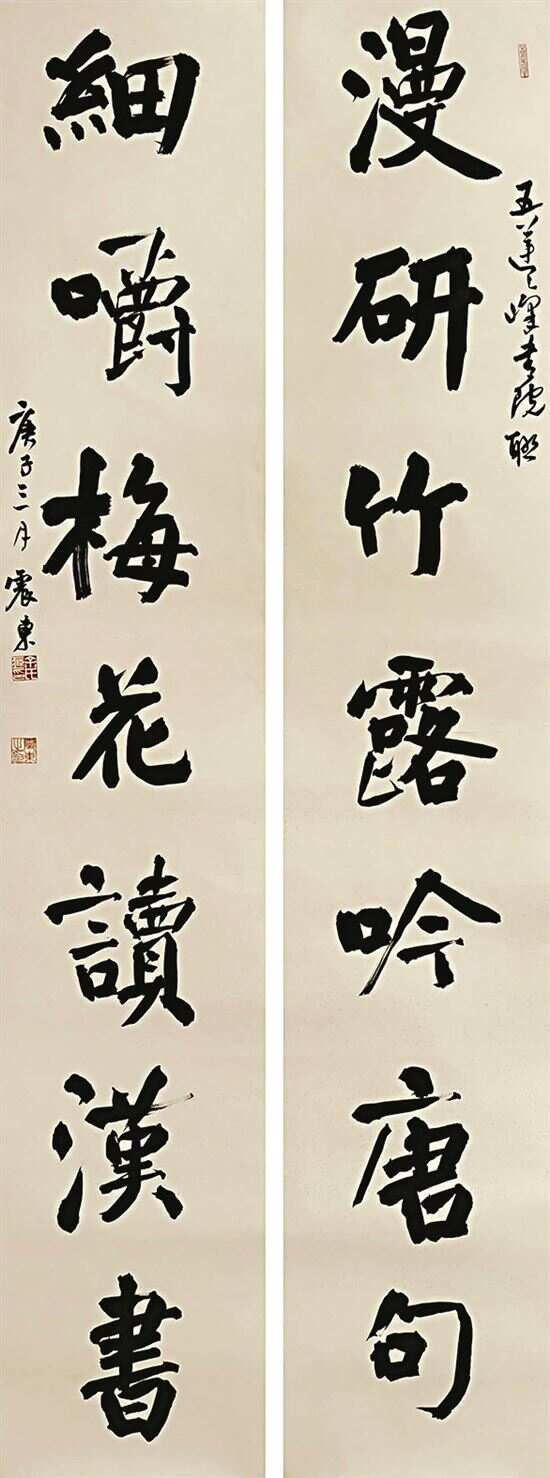 漫研竹露吟唐句
五蓮峰書院聯
細嚼梅花讀漢書
庚子三月震東